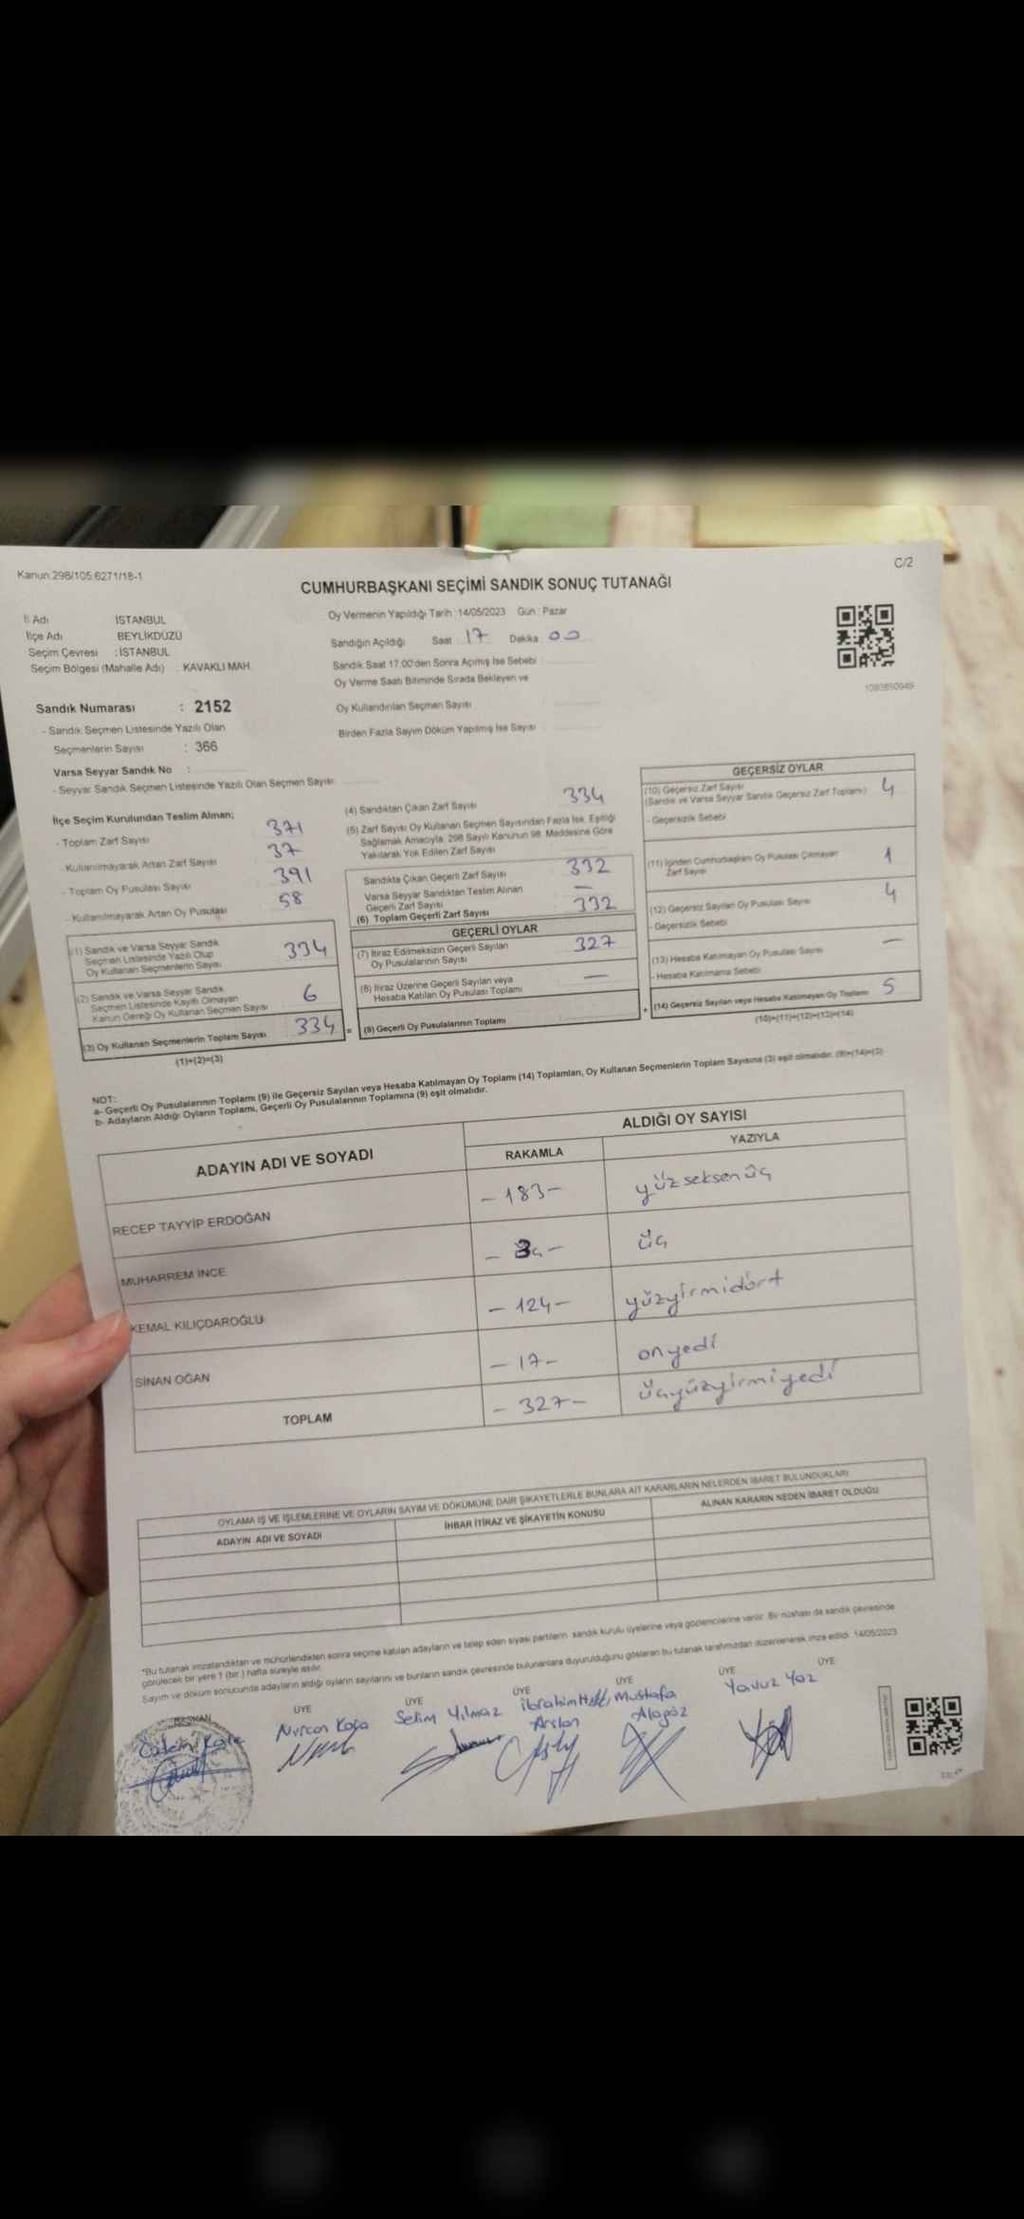 Kanun:298/105:6271/18-1
C/2
CUMHURBAŞKANI SEÇİMİ SANDIK SONUÇ TUTANAĞI
İl Adı İSTANBUL
İlçe Adı BEYLİKDÜZÜ
Seçim Çevresi : İSTANBUL
Seçim Bölgesi (Mahalle Adı) : KAVAKLI MAH.
Oy Vermenin Yapıldığı Tarih :14/05/2023 Gün : Pazar
Sandığın Açıldığı Saat 17 Dakika 00
Sandık Saat 17.00'den Sonra Açılmış İse Sebebi
Oy Verme Saati Bitiminde Sırada Bekleyen ve
Oy Kullandırılan Seçmen Sayısı
Birden Fazla Sayım Döküm Yapılmış İse Sayısı
Sandık Numarası : 2152
- Sandık Seçmen Listesinde Yazılı Olan
Seçmenlerin Sayısı : 366
Varsa Seyyar Sandık No :
- Seyyar Sandık Seçmen Listesinde Yazılı Olan Seçmen Sayısı
İlçe Seçim Kurulundan Teslim Alınan;
- Toplam Zarf Sayısı 371
- Kullanılmayarak Artan Zarf Sayısı 37
- Toplam Oy Pusulası Sayısı 391
- Kullanılmayarak Artan Oy Pusulası 58
(1) Sandık ve Varsa Seyyar Sandık
Seçmen Listesinde Yazılı Olup
Oy Kullanan Seçmenlerin Sayısı 334
(2) Sandık ve Varsa Seyyar Sandık
Seçmen Listesinde Kayıtlı Olmayan
Kanun Gereği Oy Kullanan Seçmen Sayısı 6
(3) Oy Kullanan Seçmenlerin Toplam Sayısı 334 =
(1)+(2)=(3)
(4) Sandıktan Çıkan Zarf Sayısı 334
(5) Zarf Sayısı Oy Kullanan Seçmen Sayısından Fazla İse, Eşitliği
Sağlamak Amacıyla, 298 Sayılı Kanunun 98. Maddesine Göre
Yakılarak Yok Edilen Zarf Sayısı
Sandıkta Çıkan Geçerli Zarf Sayısı 332
Varsa Seyyar Sandıktan Teslim Alınan
Geçerli Zarf Sayısı —
(6) Toplam Geçerli Zarf Sayısı 332
GEÇERLİ OYLAR
(7) İtiraz Edilmeksizin Geçerli Sayılan
Oy Pusulalarının Sayısı 327
(8) İtiraz Üzerine Geçerli Sayılan veya
Hesaba Katılan Oy Pusulası Toplamı —
(9) Geçerli Oy Pusulalarının Toplamı +
GEÇERSİZ OYLAR
(10) Geçersiz Zarf Sayısı
(Sandık ve Varsa Seyyar Sandık Geçersiz Zarf Toplamı) 4
- Geçersizlik Sebebi
(11) İçinden Cumhurbaşkanı Oy Pusulası Çıkmayan
Zarf Sayısı 1
(12) Geçersiz Sayılan Oy Pusulası Sayısı 4
- Geçersizlik Sebebi
(13) Hesaba Katılmayan Oy Pusulası Sayısı —
- Hesaba Katılmama Sebebi
(14) Geçersiz Sayılan veya Hesaba Katılmayan Oy Toplamı 5
(10)+(11)+(12)+(13)=(14)
NOT:
a- Geçerli Oy Pusulalarının Toplamı (9) ile Geçersiz Sayılan veya Hesaba Katılmayan Oy Toplamı (14) Toplamları, Oy Kullanan Seçmenlerin Toplam Sayısına (3) eşit olmalıdır. (9)+(14)=(3)
b- Adayların Aldığı Oyların Toplamı, Geçerli Oy Pusulalarının Toplamına (9) eşit olmalıdır.
ADAYIN ADI VE SOYADI
ALDIĞI OY SAYISI
RAKAMLA YAZIYLA
RECEP TAYYİP ERDOĞAN - 183 - yüzseksenüç
MUHARREM İNCE üç
KEMAL KILIÇDAROĞLU - 124 - yüzyirmidört
SİNAN OĞAN - 17 - onyedi
TOPLAM - 327 - üçyüzyirmiyedi
OYLAMA İŞ VE İŞLEMLERİNE VE OYLARIN SAYIM VE DÖKÜMÜNE DAİR ŞİKAYETLERLE BUNLARA AİT KARARLARIN NELERDEN İBARET BULUNDUKLARI
ADAYIN ADI VE SOYADI İHBAR İTİRAZ VE ŞİKAYETİN KONUSU ALINAN KARARIN NEDEN İBARET OLDUĞU
*Bu tutanak imzalandıktan ve mühürlendikten sonra seçime katılan adayların ve talep eden siyasi partilerin sandık kurulu üyelerine veya gözlemcilerine verilir. Bir nüshası da sandık çevresinde
görülecek bir yere 1 (bir) hafta süreyle asılır.
Sayım ve döküm sonucunda adayların aldığı oyların sayılarını ve bunların sandık çevresinde bulunanlara duyurulduğunu gösteren bu tutanak tarafımızdan düzenlenerek imza edildi. 14/05/2023
BAŞKAN ÜYE ÜYE ÜYE ÜYE ÜYE ÜYE
Nurcan Koca Selim Yılmaz İbrahim Arslan Mustafa Alagöz Yavuz Yaz